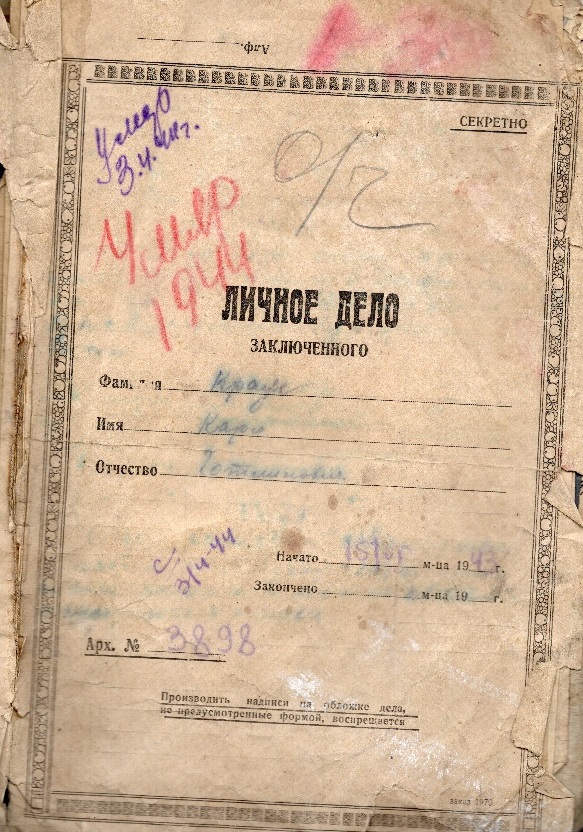 Алф.
СЕКРЕТНО
Умер
3.4.44г.
О/с
Умер
1944
ЛИЧНОЕ ДЕЛО
ЗАКЛЮЧЕННОГО
Фамилия Краузе
Имя Карл
Отчество Готлибович
Начато м-ца 1943 г.
3/4-44
Закончено м-ца 19 г.
Арх. № 3898
Производить надписи на обложке дела,
не предусмотренные формой, воспрещается
заказ 1970